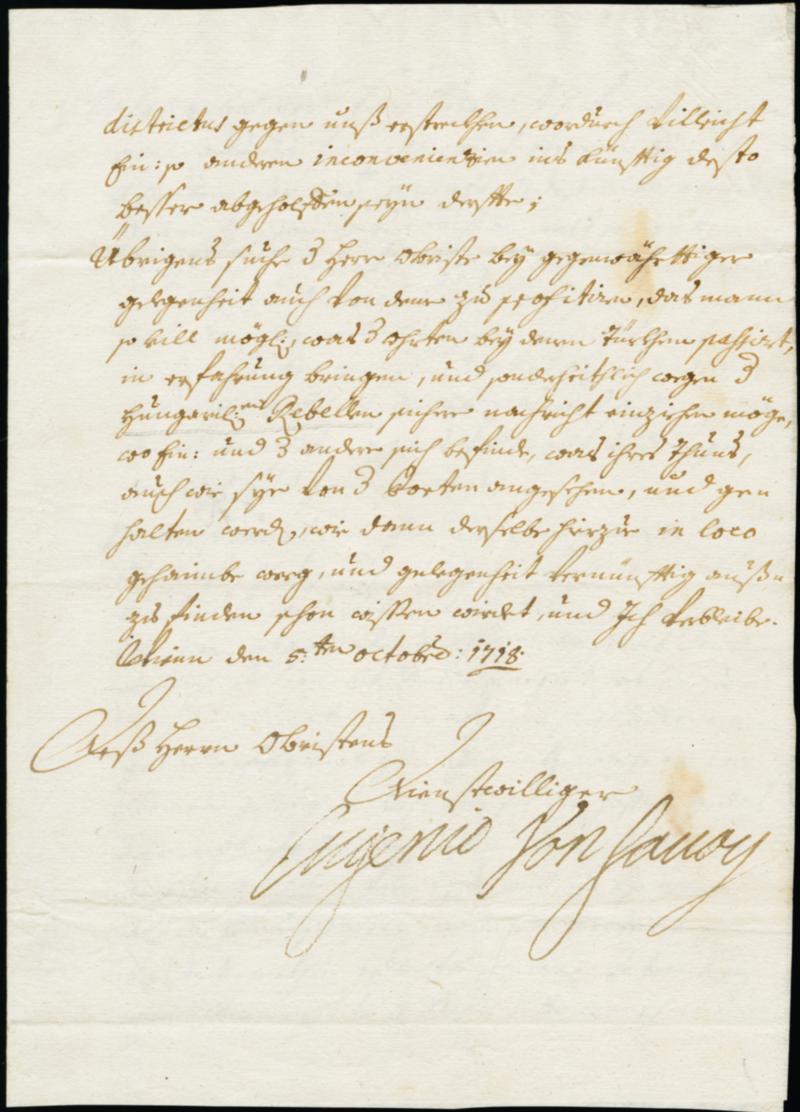 districtus gegen unß erstrekhen, wordurch villeicht
ein: so anderen inconvenientien ins künfftig desto
besser abgeholffen seyn derffte;
Übrigens suche d Herr Obriste bey gegenwährttiger
gelegenheit auch von deme zu profitiren, das mann
so vill mögl:, was d ohrten bey denen Türkhen passirt,
in erfahrung bringen, und sonderheithlich wegen d
Hungarisch:en Rebellen sichere nachricht einziehen möge,
wo ein: und d andere sich befinde, was ihres Thuns,
auch wie sye von d Porten angesehen, und ge=
halten werd, wie dann derselbe hierzue in loco
gehaimbe weeg, und gelegenheit vernünfftig auß=
zufinden schon wissen wirdet, und Ich verbleibe.
Wienn den 5:ten Octobris: 1718.
Deß Herrn Obristens
Dienstwilliger
Eugenio Von Savoy